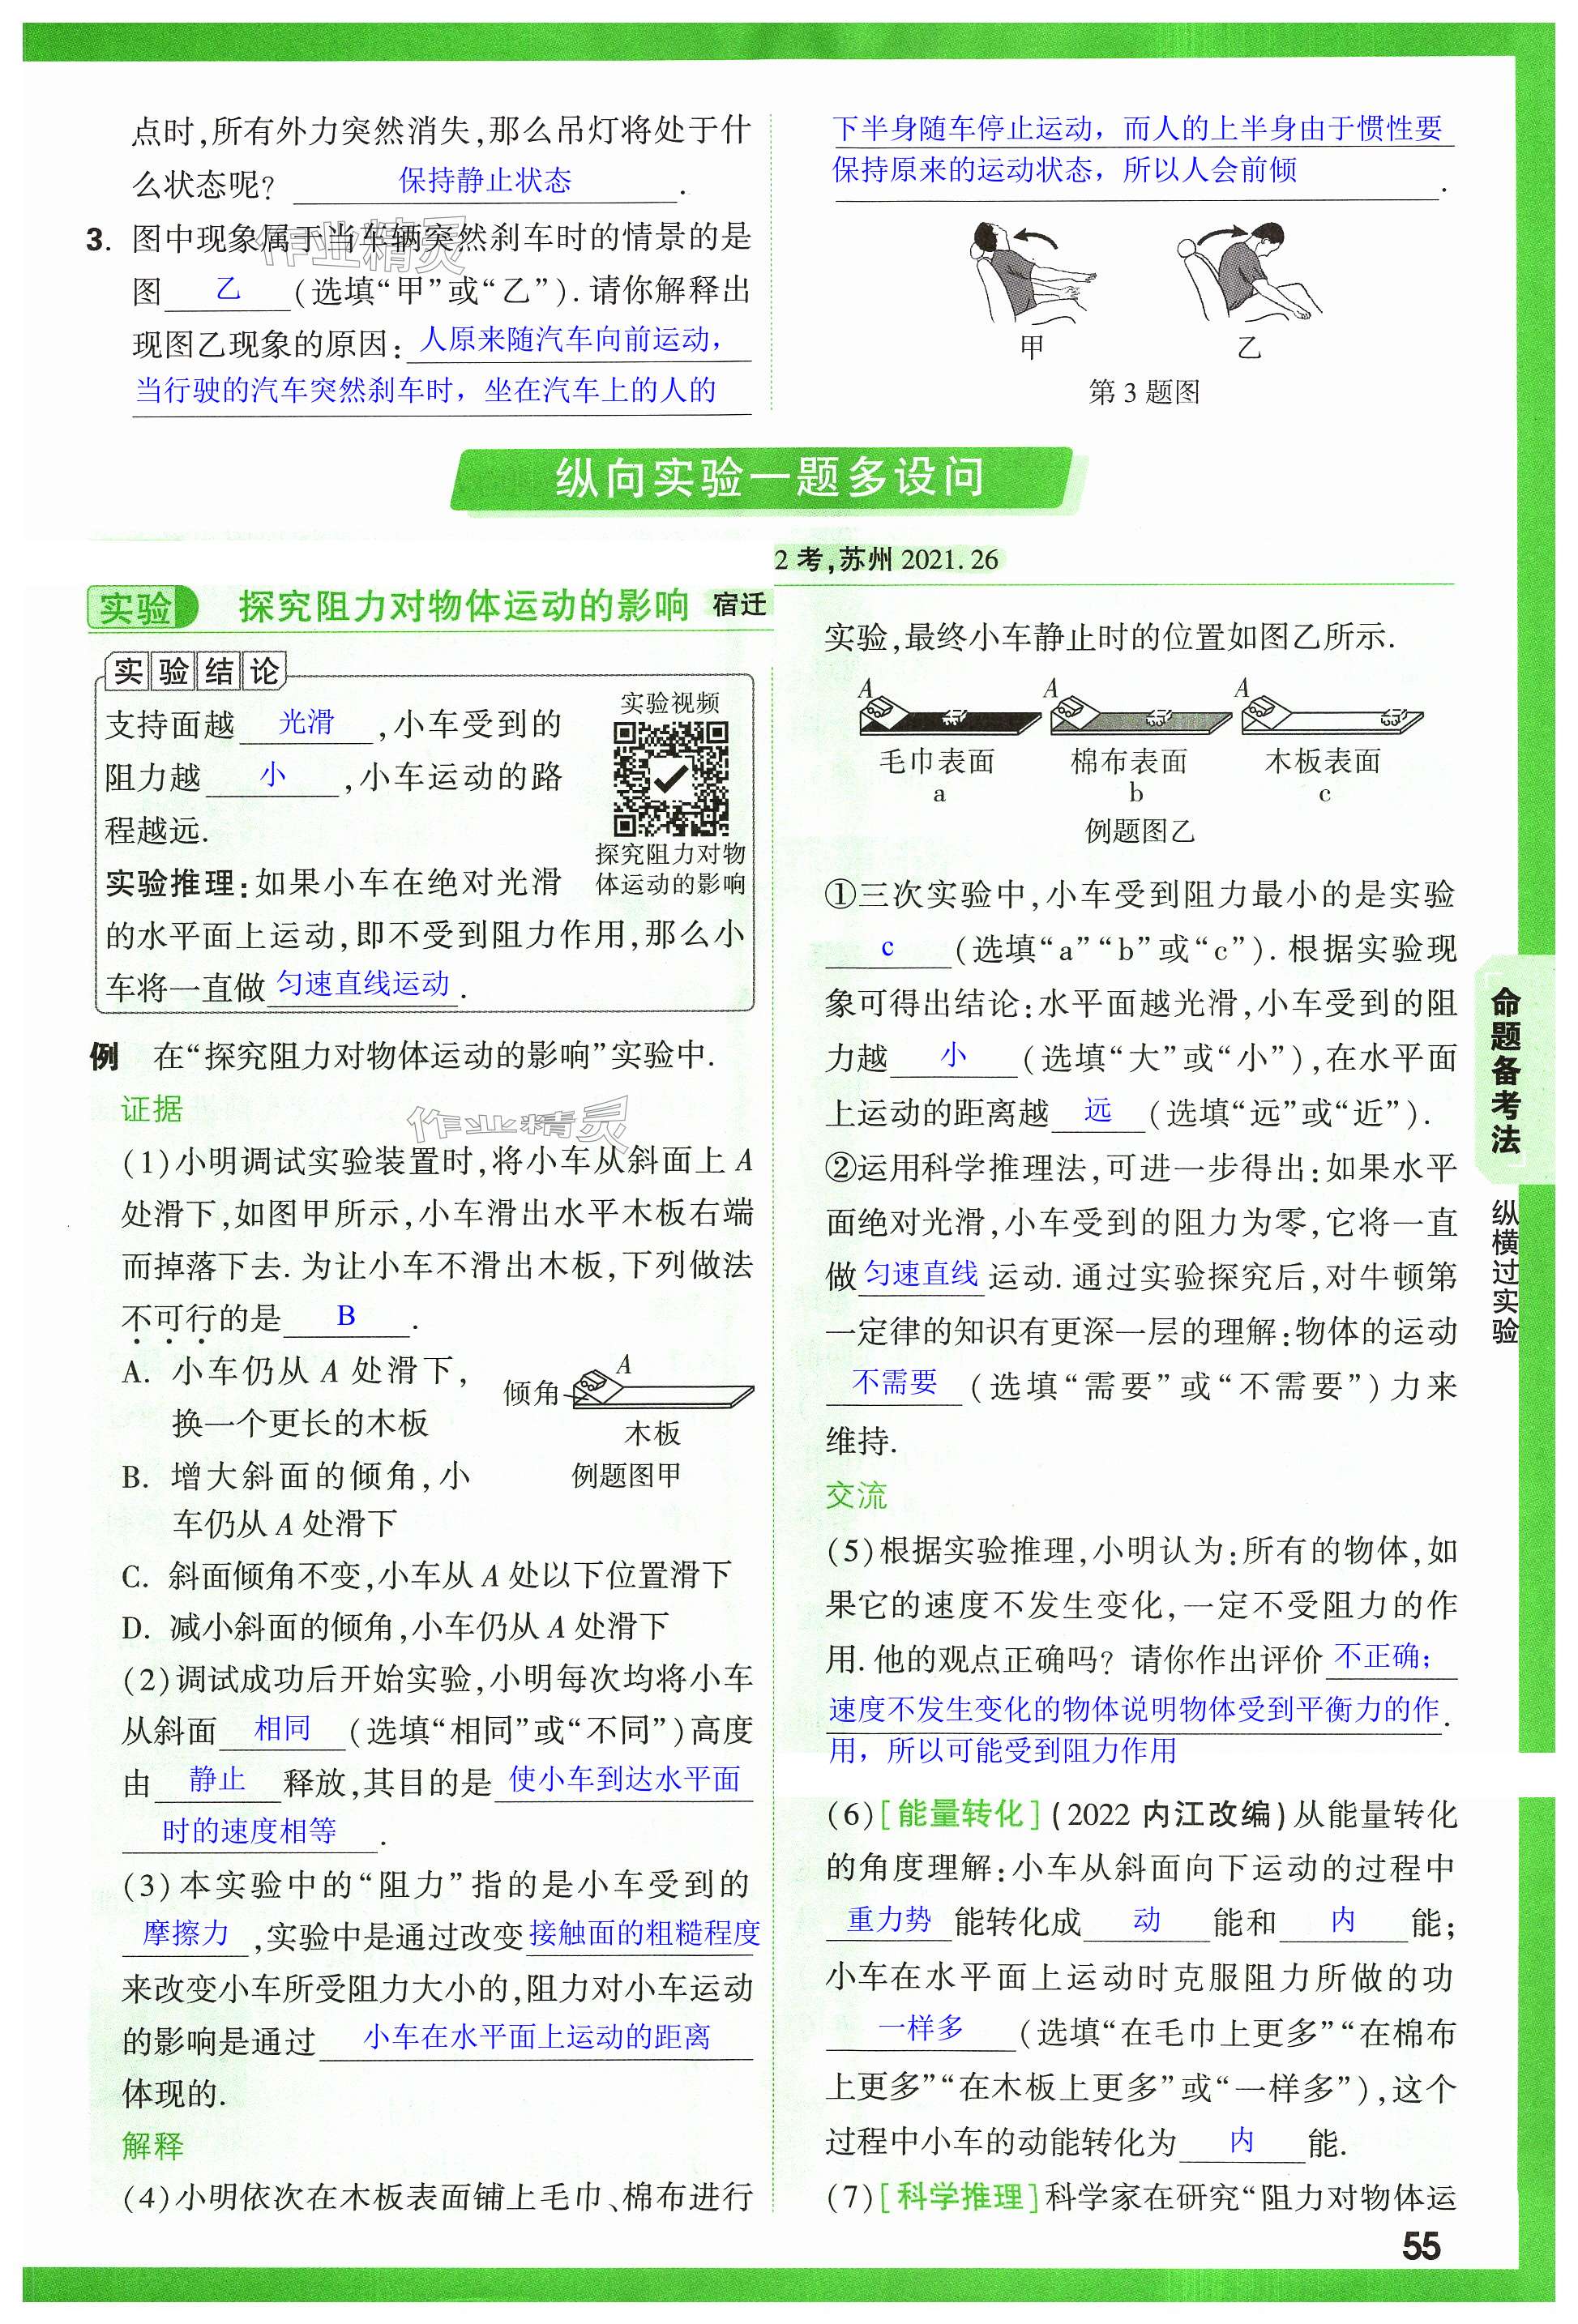 点时,所有外力突然消失,那么吊灯将处于什
么状态呢? 保持静止状态 .
3. 图中现象属于当车辆突然刹车时的情景的是
图 乙 (选填“甲”或“乙”). 请你解释出
现图乙现象的原因: 人原来随汽车向前运动，
当行驶的汽车突然刹车时，坐在汽车上的人的
下半身随车停止运动，而人的上半身由于惯性要
保持原来的运动状态，所以人会前倾 .
甲 乙
第 3 题图
作业精灵
纵向实验一题多设问
实验 探究阻力对物体运动的影响 宿迁
2 考,苏州 2021. 26
实验结论
支持面越 光滑 ,小车受到的
阻力越 小 ,小车运动的路
程越远.
实验视频
探究阻力对物
体运动的影响
实验推理:如果小车在绝对光滑
的水平面上运动,即不受到阻力作用,那么小
车将一直做 匀速直线运动 .
例 在“探究阻力对物体运动的影响”实验中.
证据
作业精灵
(1)小明调试实验装置时,将小车从斜面上 A
处滑下,如图甲所示,小车滑出水平木板右端
而掉落下去. 为让小车不滑出木板,下列做法
不可行的是 B .
A. 小车仍从 A 处滑下,
换一个更长的木板
B. 增大斜面的倾角,小
车仍从 A 处滑下
倾角 A
木板
例题图甲
C. 斜面倾角不变,小车从 A 处以下位置滑下
D. 减小斜面的倾角,小车仍从 A 处滑下
(2)调试成功后开始实验,小明每次均将小车
从斜面 相同 (选填“相同”或“不同”)高度
由 静止 释放,其目的是 使小车到达水平面
时的速度相等 .
(3)本实验中的“阻力”指的是小车受到的
摩擦力 ,实验中是通过改变 接触面的粗糙程度
来改变小车所受阻力大小的,阻力对小车运动
的影响是通过 小车在水平面上运动的距离
体现的.
解释
(4)小明依次在木板表面铺上毛巾、棉布进行
实验,最终小车静止时的位置如图乙所示.
A A A
毛巾表面 棉布表面 木板表面
a b c
例题图乙
①三次实验中,小车受到阻力最小的是实验
c (选填“a”“b”或“c”). 根据实验现
象可得出结论:水平面越光滑,小车受到的阻
力越 小 (选填“大”或“小”),在水平面
上运动的距离越 远 (选填“远”或“近”).
②运用科学推理法,可进一步得出:如果水平
面绝对光滑,小车受到的阻力为零,它将一直
做 匀速直线 运动. 通过实验探究后,对牛顿第
一定律的知识有更深一层的理解:物体的运动
不需要 (选填“需要”或“不需要”)力来
维持.
交流
(5)根据实验推理,小明认为:所有的物体,如
果它的速度不发生变化,一定不受阻力的作
用. 他的观点正确吗? 请你作出评价 不正确；
速度不发生变化的物体说明物体受到平衡力的作 .
用，所以可能受到阻力作用
(6)[能量转化](2022 内江改编)从能量转化
的角度理解:小车从斜面向下运动的过程中
重力势 能转化成 动 能和 内 能;
小车在水平面上运动时克服阻力所做的功
一样多 (选填“在毛巾上更多”“在棉布
上更多”“在木板上更多”或“一样多”),这个
过程中小车的动能转化为 内 能.
(7)[科学推理]科学家在研究“阻力对物体运
命题备考法
纵横过实验
55